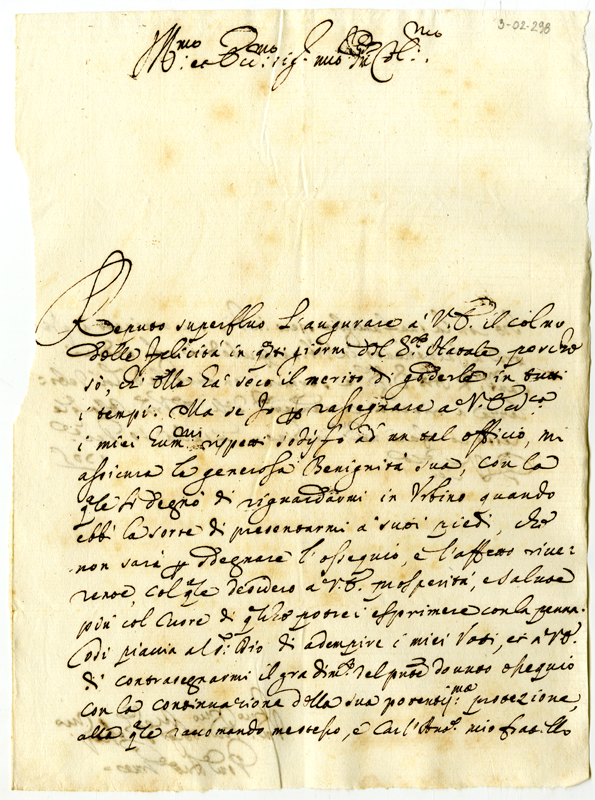 3-02-298
Ill.mo et Ecc.mo Sig.r mio P.rone Col.mo
Reputo superfluo l'augurare à V.E. il colmo
delle felicità in q.sti giorni del S. Natale, perche
sò, ch'ella hà seco il merito di goderle in tutti
i tempi. Ma se Io p rassegnare a V. Ecc.a
i miei hum.mi rispetti sodisfo ad un tal officio, mi
assicura la generosa Benignità sua, con la
q.le si degnò di riguardarmi in Urbino quando
ebbi la sorte di presentarmi a suoi piedi, che
non sarà p sdegnare l'ossequio, e l'affetto rive-
rente, col q.le desidero a V.E. prosperità, e salute
più col cuore di q.llo potrei esprimere con la penna.
Così piaccia al S. Dio di adempire i miei Voti, et a V.E.
di contrasegnarmi il gradim.to del p.nte dovuto ossequio
con la continuazione della sua potentiss.ma protezione,
alla q.le raccomando me stesso, e Carl'Ant.o mio fratello